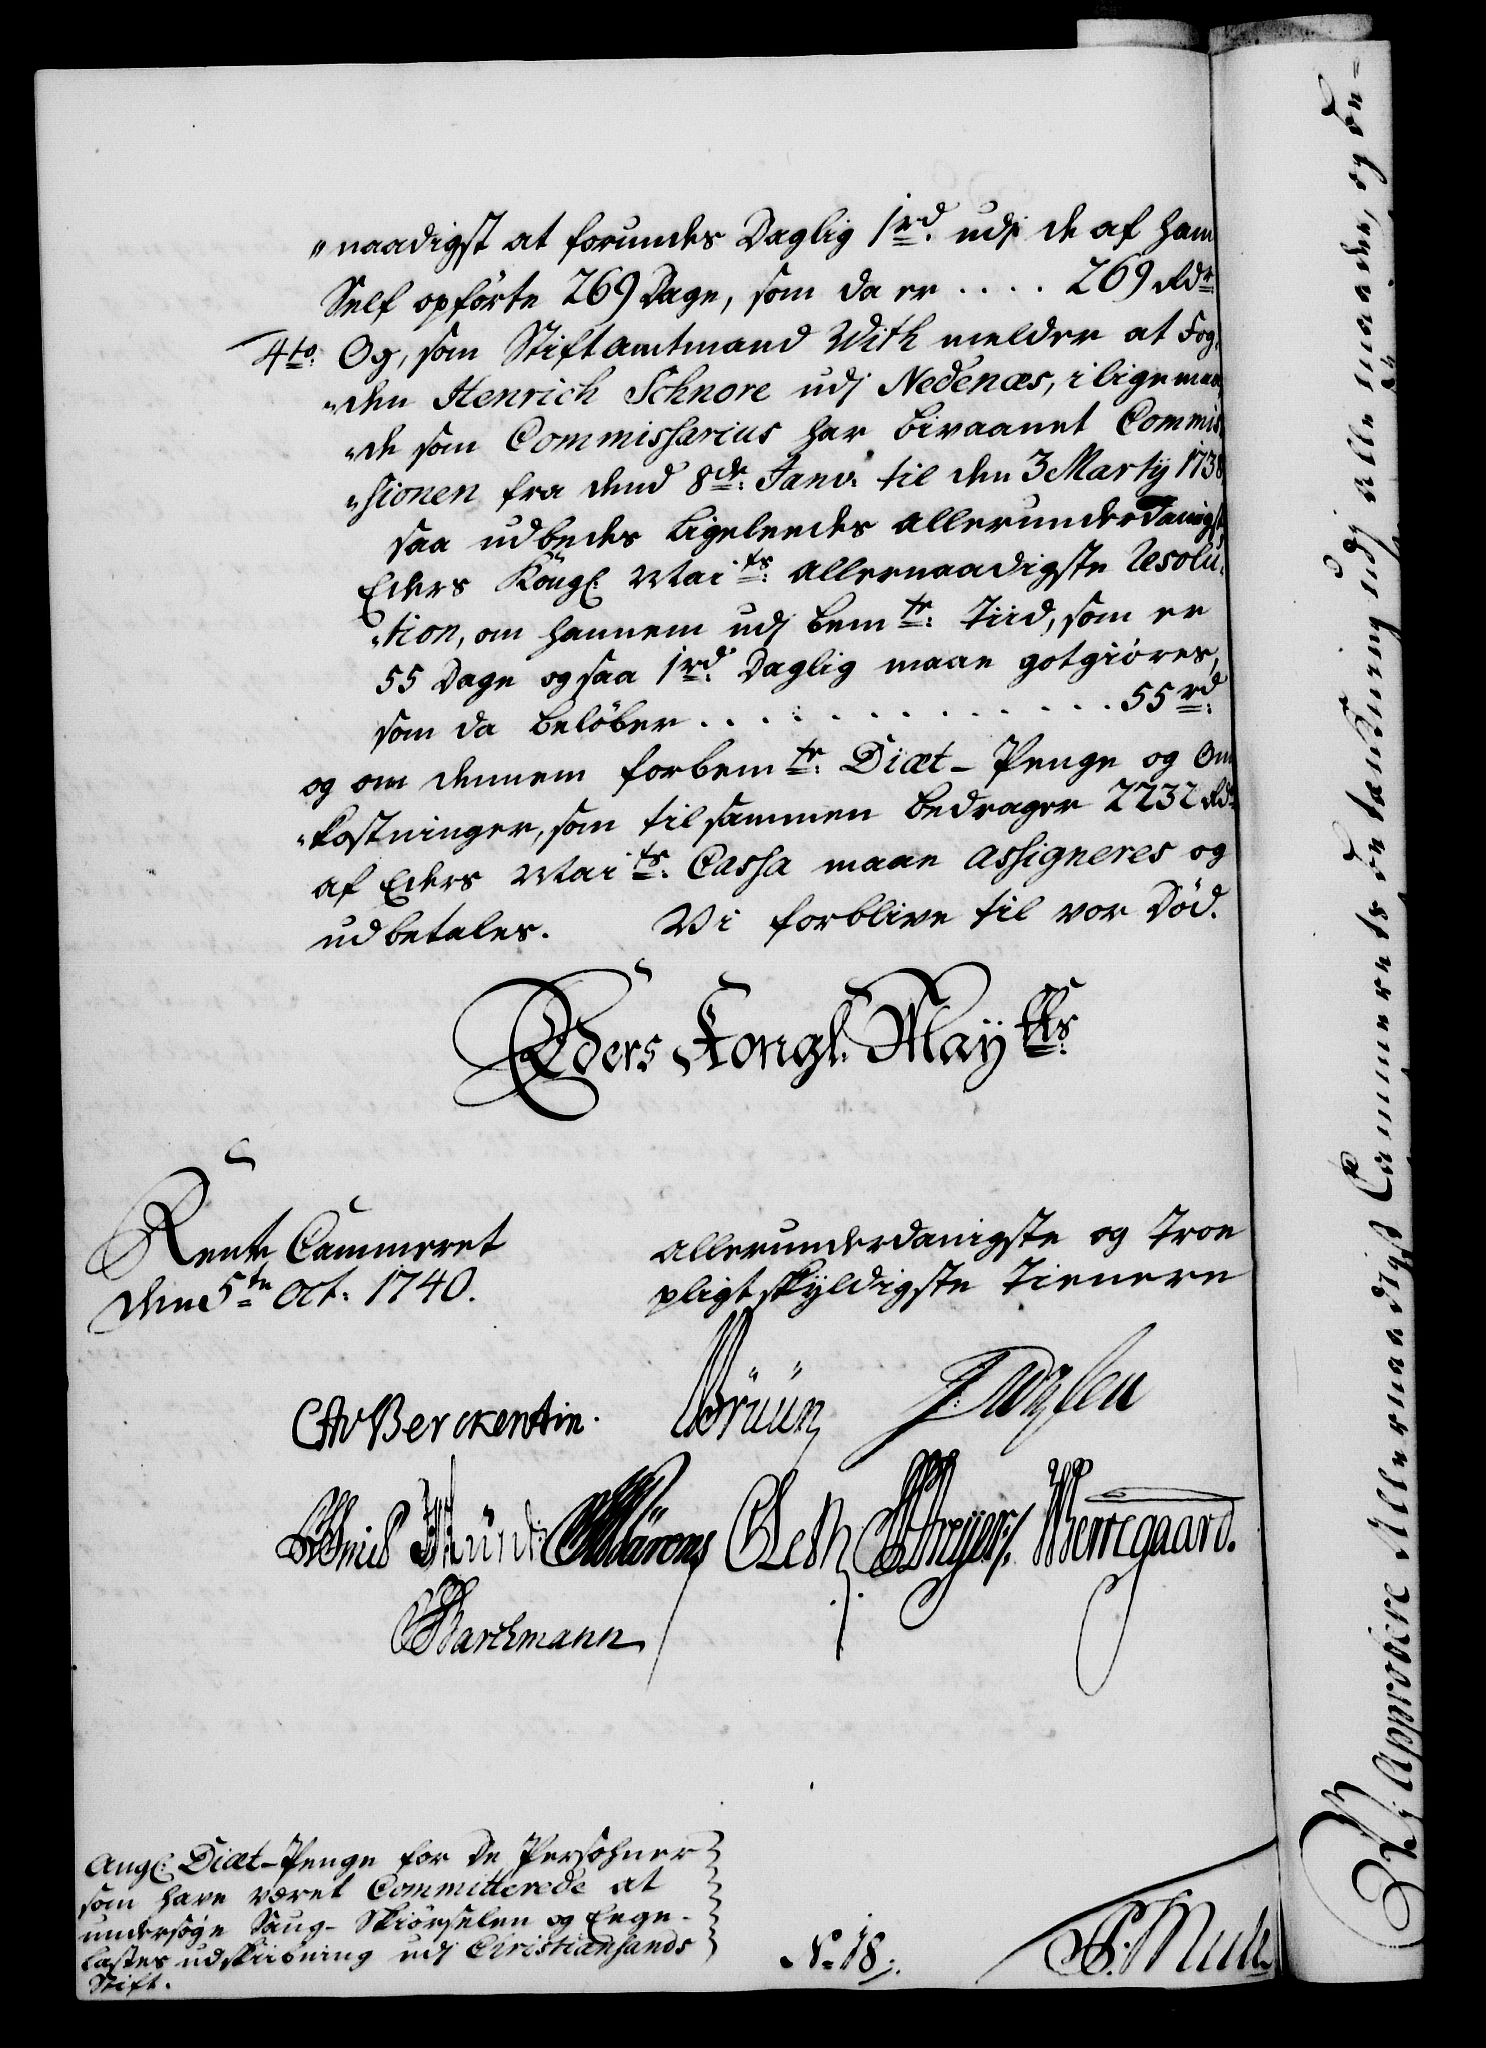 "naadigst at forundes Daglig 1 rd. udj de af ham
Self opførte 269 Dage, som da er .... 269 Rdr.
4to. Og, som Stiftamtmand With melder at Fog-
"den Henrich Schnore udj Nedenæs, i lige maa-
"de som Commissarius har bivaanet Commis-
"sionen fra dend 8de Janv. til den 3 Martij 1738
saa udbedes ligeleedes allerunderdanigst,
Eders Köngl. Maits. allernaadigste Resolu-
"tion, om hannem udj bemte. Tiid, som er
55 Dage ogsaa 1 rd. Daglig maae gotgiøres,
som da beløber . . . . . . . . . . . . . 55 rd.
og om dennem forbemte. Diæt-Penge og Om-
"kostninger, som tilsammen bedrager 2232 Rdr.
af Eders Maits. Cassa maae assigneres og
udbetales. Vi forblive til vor Død.
Eders Kongl. Maytts.
Rente Cammeret
den 5te Oct. 1740.
allerunderdanigste og Troe
pligtskyldigste Tienere
CAvBerckentin. Brüün
Oeth Wernegaard.
Barchmann
Angl. Diæt-Penge for De Persohner
som have været Committerede at
undersøge Saug-Skiørselen og Ege-
lastes udskibning udj Christiansands
Stift.
No. 18.
Vi Approbere Allernaadigst Cammerets betænkning udj alle maader, og be-